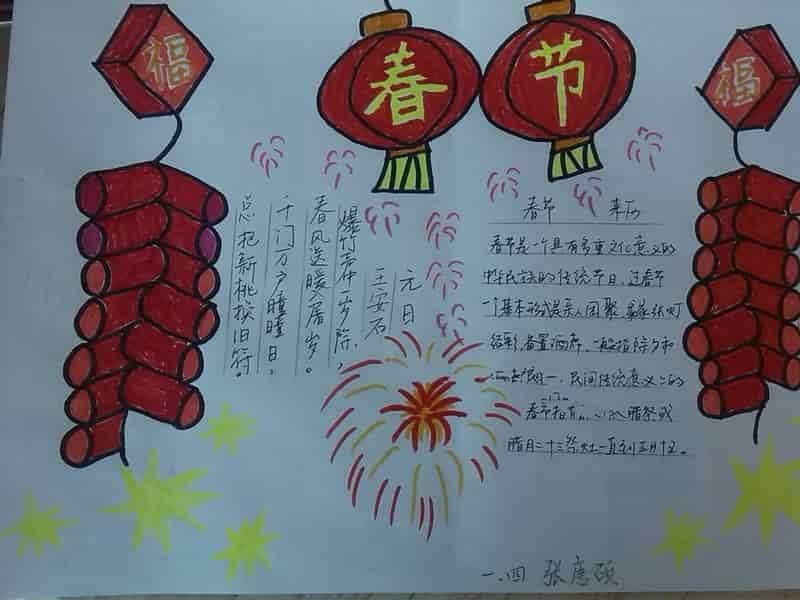 福
春
节
福
春节 来历
春节是一个具有多重文化意义的
中华民族的传统节日,过春节
一个基本形式是亲人团聚,家家张灯
结彩,备置酒席,一般指除夕和
初一,民间传统意义上的
春节指 腊祭或
腊月二十三祭灶一直到正月十五。
元日
王安石
爆竹声中一岁除,
春风送暖入屠岁。
千门万户曈曈日,
总把新桃换旧符。
一.四 张